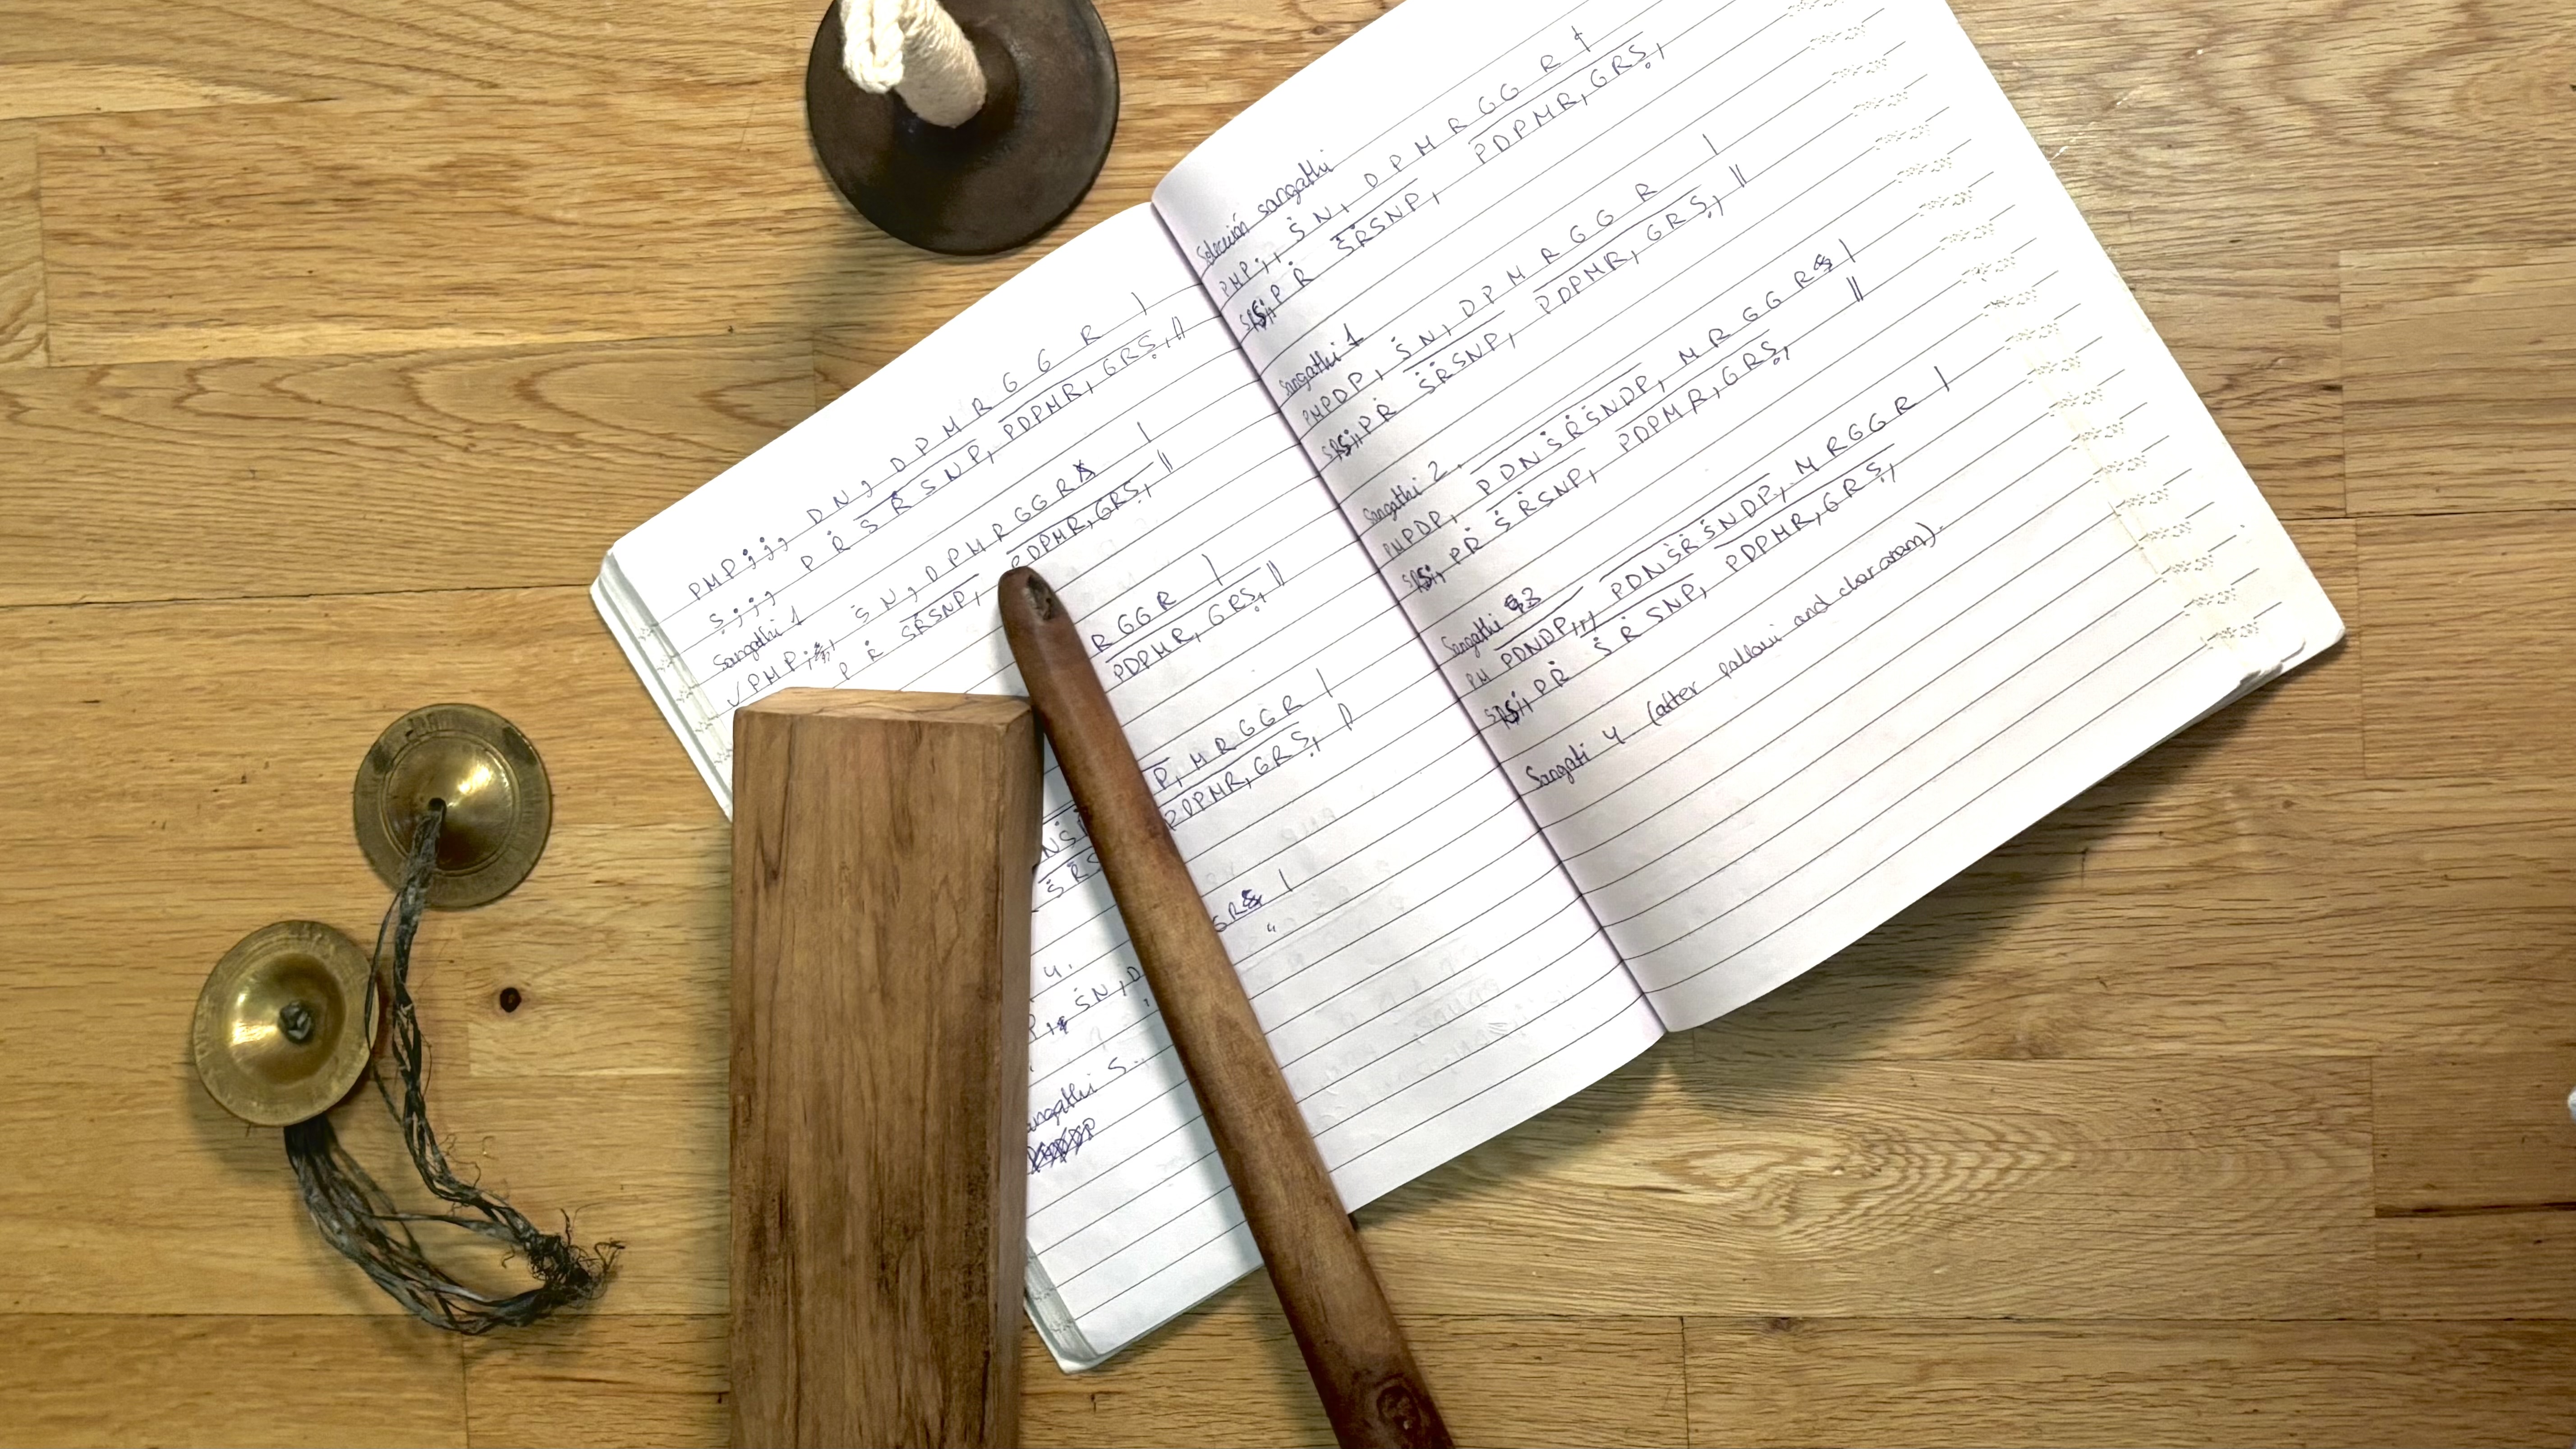 PMP;;, DN, DPMRGG R |
Ṣ;;, PṘ ṠṘSNP, PDPMR, GRṢ, ||
Sangathi 1
✓PMP;, ṠN, DPMRGGR |
PṘ ṠṘSNP, PDPMR, GRṢ, ||
RGGR |
PDPMR, GRṢ, ||
P, MRGGR |
NṠ
ṠR PDPMR, GRṢ, ||
4.
GR |
P, ṠN, D "
angathi 5.
Selección sangathi
PMP;, ṠN, DPMRGG R |
PṘ ṠṘSNP, PDPMR, GRṢ,
Sangathi 1
PMPDP, ṠN, DPMRGGR |
PṘ ṠṘSNP, PDPMR, GRṢ, ||
Sangathi 2.
PMPDP, PDNṠṘṠNDP, MRGGR |
PṘ ṠṘSNP, PDPMR, GRṢ, ||
Sangathi 3
PM PDNDP,,, PDNṠṘṠNDP, MRGGR |
PṘ ṠṘSNP, PDPMR, GRṢ,
Sangati 4 (after pallavi and charanam).